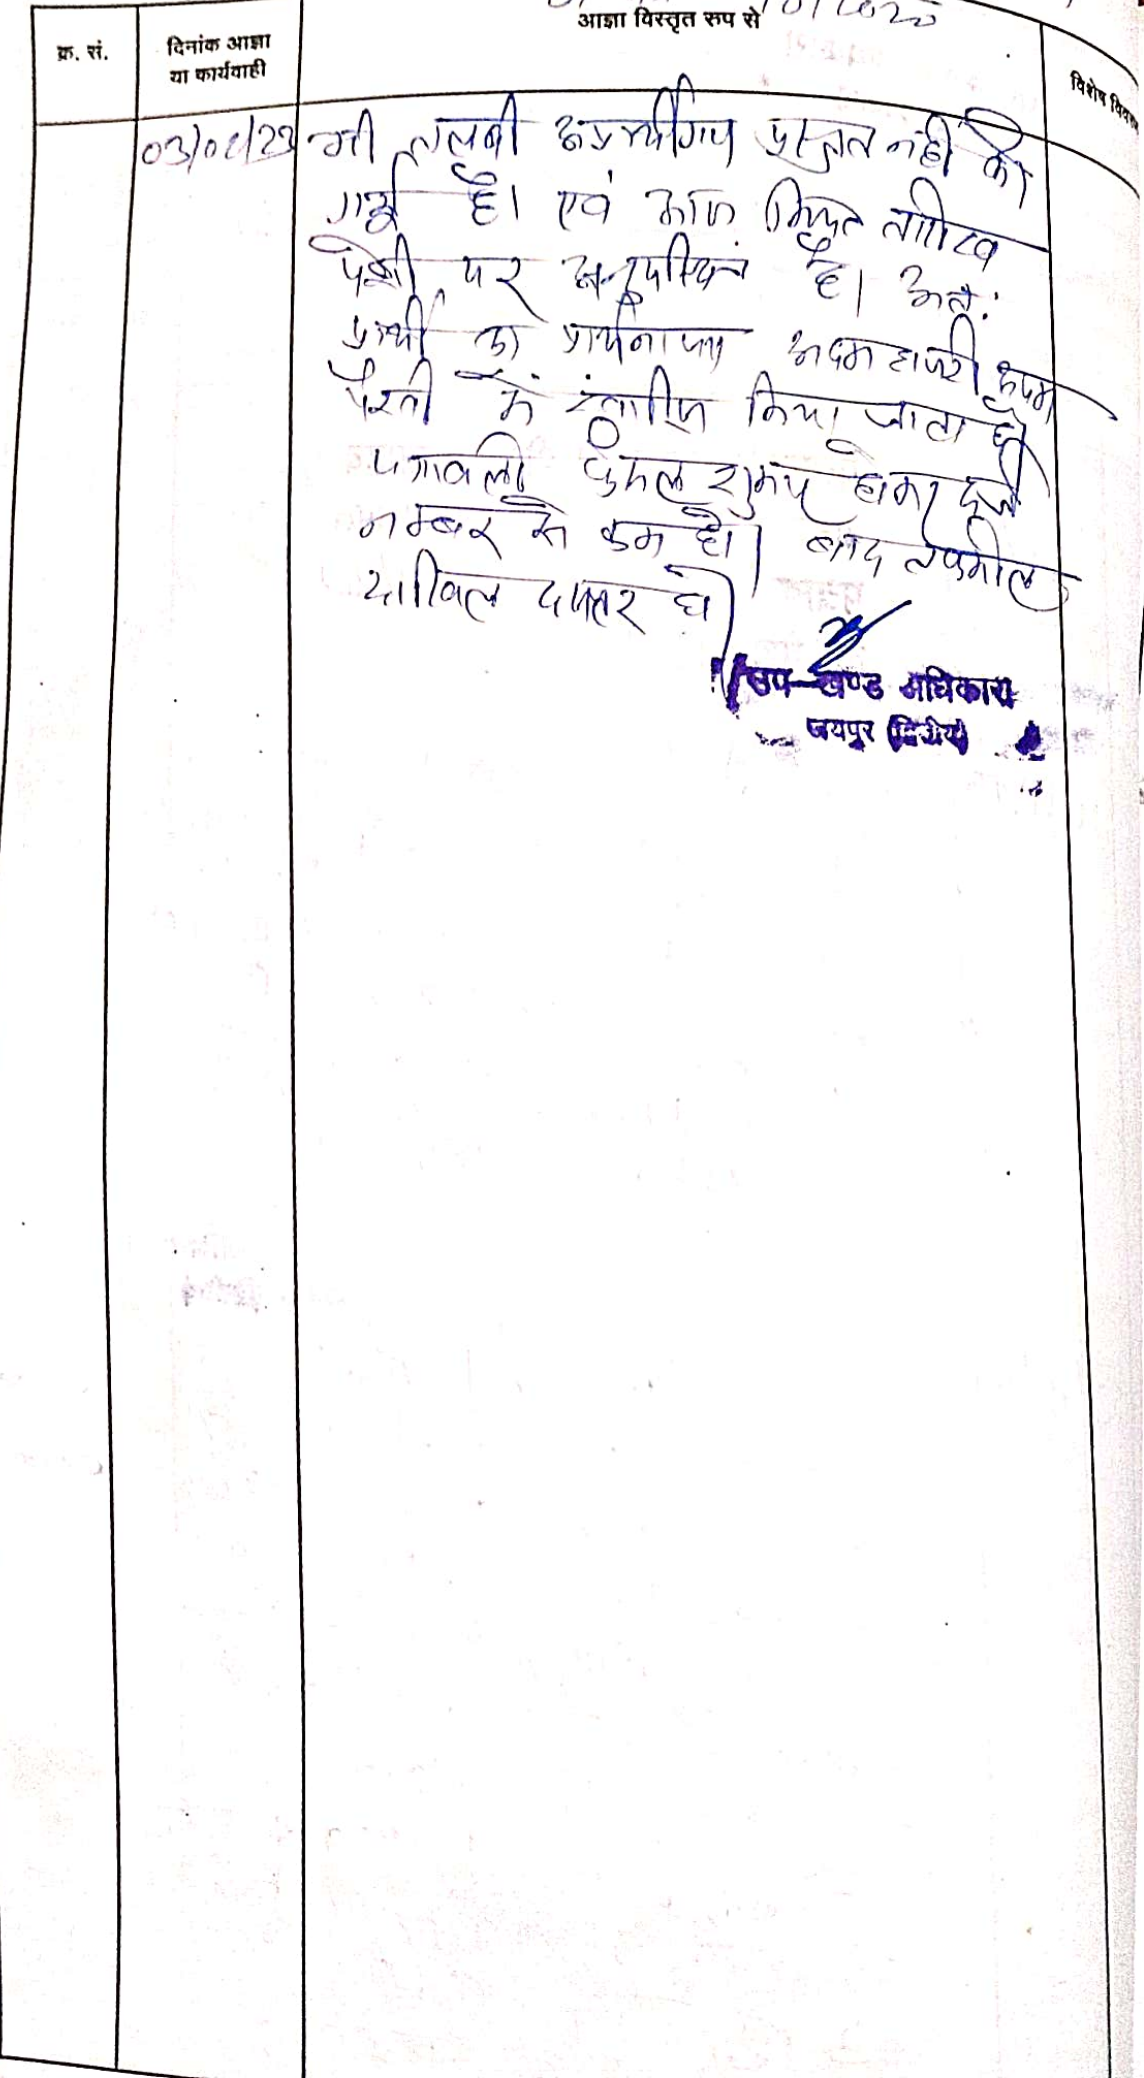 आज्ञा विस्तृत रुप से
क्र. सं.
दिनांक आज्ञा
या कार्यवाही
विशेष विवरण
03/01/23
भी तलबी अप्रार्थीगण प्रस्तुत नही की
गई है। एवं आज नियत तारीख
पेशी पर अनुपस्थित है। अतः
प्रार्थी का प्रार्थना पत्र अदम हाजरी अदम
पैरवी में खारीज किया जाता है
पत्रावली फैसल शुमार होकर दर्ज
नम्बर से कम हो। बाद तकमील
दाखिल दफ्तर हो
उप-खण्ड अधिकारी
जयपुर (द्वितीय)